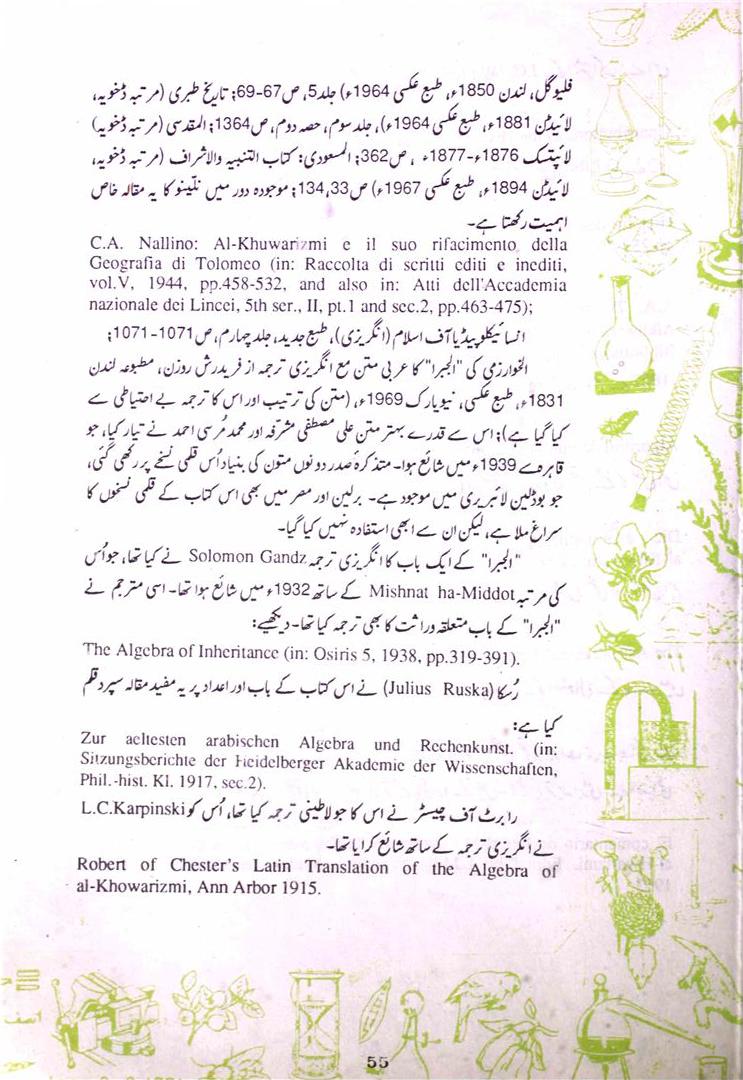 فلیوگل، لندن 1850ء، طبع عکسی 1964ء) جلد5، ص67-69؛ تاریخ طبری (مرتبہ ڈخویہ،
لائیڈن 1881ء، طبع عکسی 1964ء)، جلد سوم، حصہ دوم، ص1364؛ المقدسی (مرتبہ ڈخویہ)
لائپتسک 1876ء-1877ء ، ص362؛ المسعودی: کتاب التنبیہ والاشراف (مرتبہ ڈخویہ،
لائیڈن 1894ء، طبع عکسی 1967ء) ص134،33؛ موجودہ دور میں نلّینو کا یہ مقالہ خاص
اہمیت رکھتا ہے۔
C.A. Nallino: Al-Khuwarizmi e il suo rifacimento della
Geografia di Tolomeo (in: Raccolta di scritti editi e inediti,
vol.V, 1944, pp.458-532, and also in: Atti dell'Accademia
nazionale dei Lincei, 5th ser., II, pt.1 and sec.2, pp.463-475);
انسائیکلوپیڈیا آف اسلام (انگریزی)، طبع جدید، جلد چہارم، ص1071-1071؛
الخوارزمی کی "الجبرا" کا عربی متن مع انگریزی ترجمہ از فریدرش روزن، مطبوعہ لندن
1831ء، طبع عکسی، نیویارک 1969ء، (متن کی ترتیب اور اس کا ترجمہ بے احتیاطی سے
کیا گیا ہے)؛ اس سے قدرے بہتر متن علی مصطفیٰ مشرّفہ اور محمد مُرسی احمد نے تیار کیا، جو
قاہرہ سے 1939ء میں شائع ہوا۔ متذکرۂ صدر دونوں متون کی بنیاد اُس قلمی نسخے پر رکھی گئی،
جو بوڈلین لائبریری میں موجود ہے۔ برلین اور مصر میں بھی اس کتاب کے قلمی نسخوں کا
سراغ ملا ہے، لیکن ان سے ابھی استفادہ نہیں کیا گیا۔
"الجبرا" کے ایک باب کا انگریزی ترجمہ Solomon Gandz نے کیا تھا، جو اُس
کی مرتبہ Mishnat ha-Middot کے ساتھ 1932ء میں شائع ہوا تھا۔ اسی مترجم نے
"الجبرا" کے باب متعلقہ وراثت کا بھی ترجمہ کیا تھا۔ دیکھیے:
The Algebra of Inheritance (in: Osiris 5, 1938, pp.319-391).
رُسکا (Julius Ruska) نے اس کتاب کے باب اور اعداد پر یہ مفید مقالہ سپرد قلم
کیا ہے:
Zur aeltesten arabischen Algebra und Rechenkunst. (in:
Sitzungsberichte der Heidelberger Akademie der Wissenschaften,
Phil.-hist. Kl. 1917, sec.2).
رابرٹ آف چیسٹر نے اس کا جو لاطینی ترجمہ کیا تھا، اُس کو L.C.Karpinski
نے انگریزی ترجمہ کے ساتھ شائع کرایا تھا۔
Robert of Chester's Latin Translation of the Algebra of
al-Khowarizmi, Ann Arbor 1915.
55